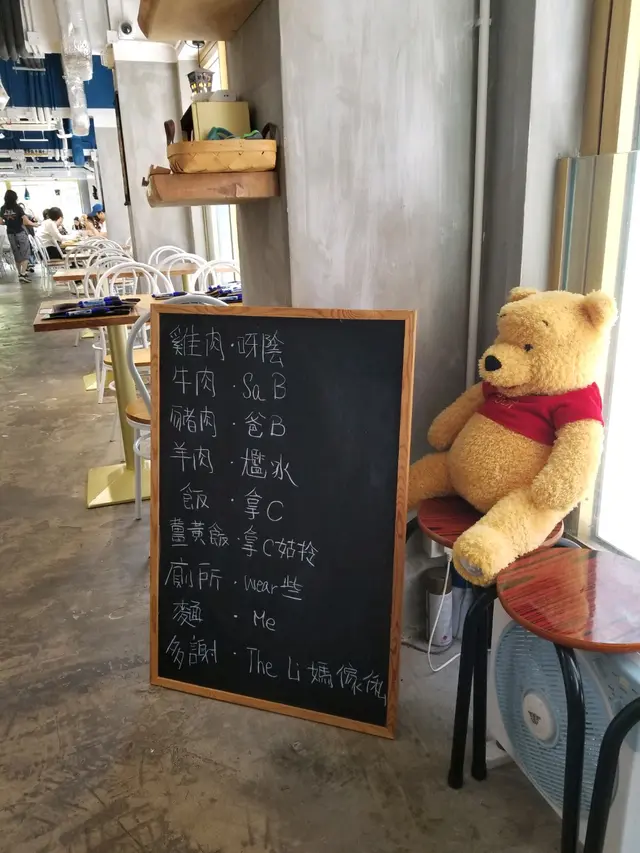 雞肉·呀陰
牛肉·Sa B
豬肉·爸B
羊肉·尷冰
飯·拿C
薑黃飯·拿C姑拎
廁所·wear些
麵·Me
多謝·The Li 媽傢俬